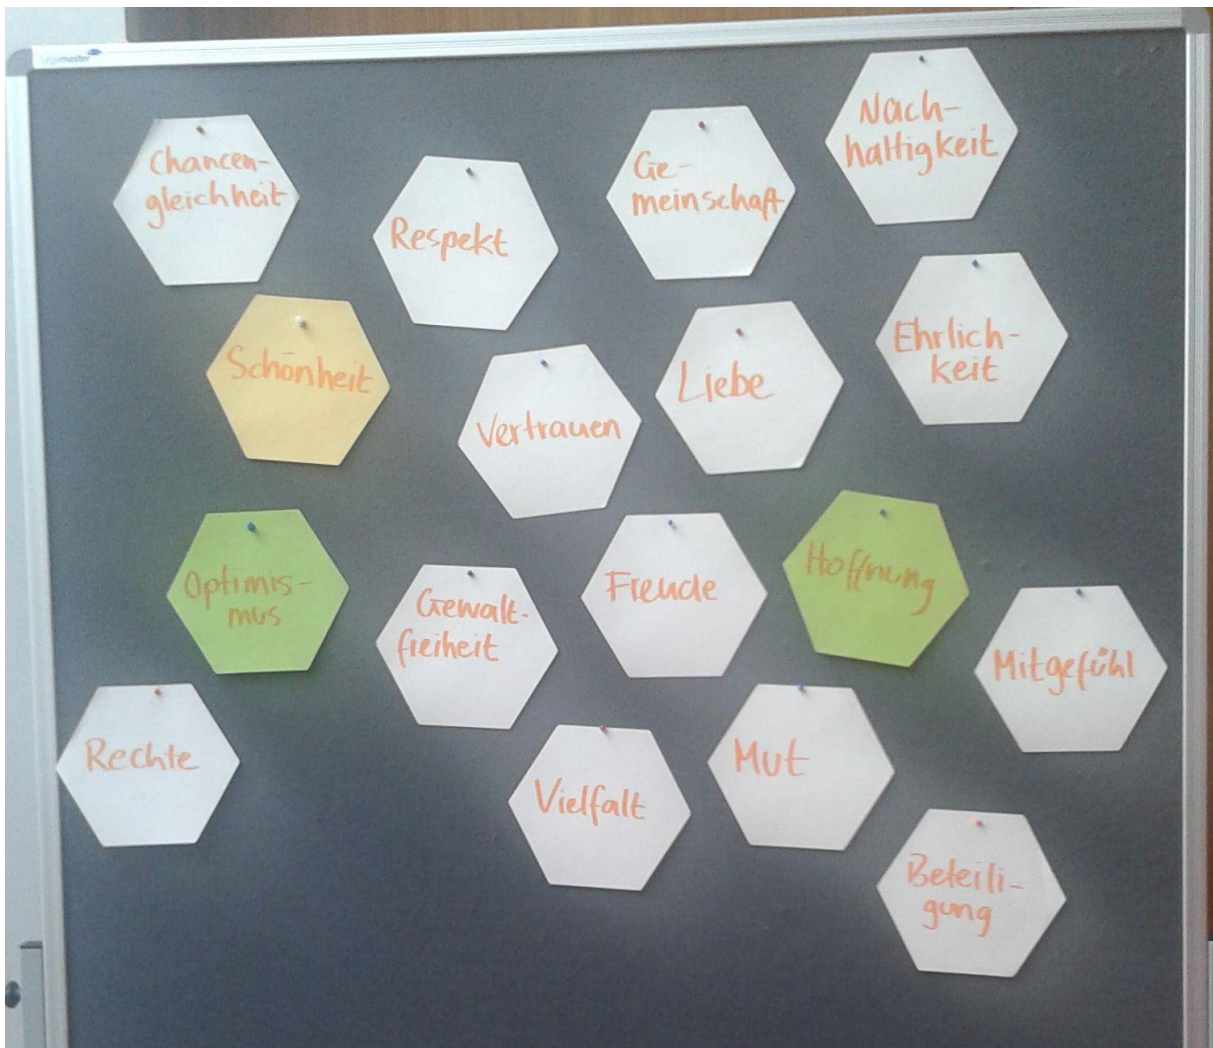 legamaster
Chancen-
gleichheit
Respekt
Ge-
meinschaft
Nach-
haltigkeit
Schönheit
Vertrauen
Liebe
Ehrlich-
keit
Optimis-
mus
Gewalt-
freiheit
Freude
Hoffnung
Mitgefühl
Rechte
Vielfalt
Mut
Beteili-
gung